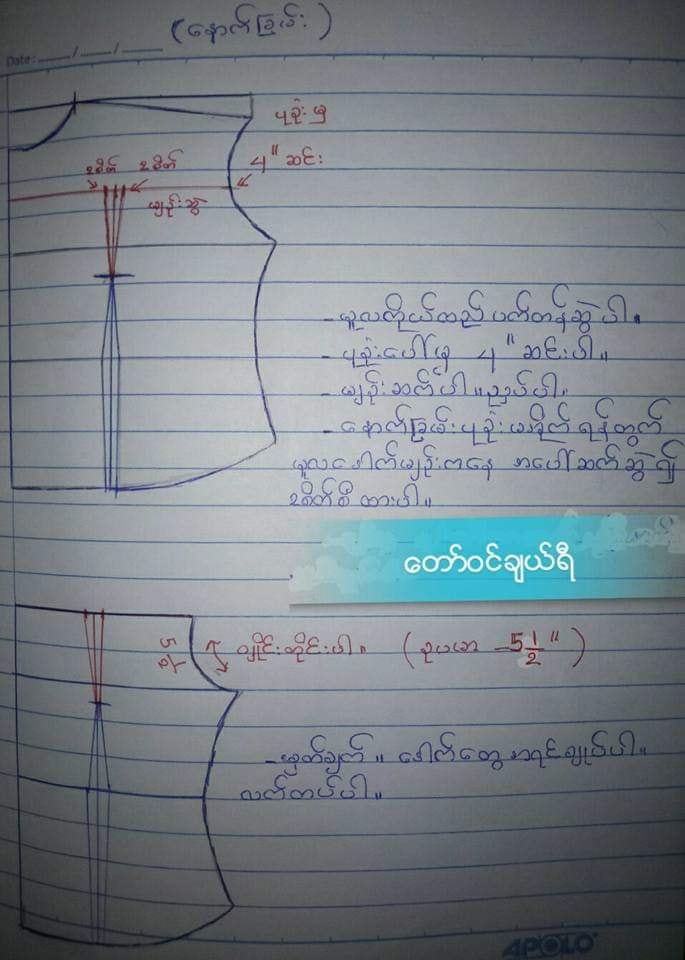 (နောက်ခြမ်း)
Date:
ပုခုံးမှ
၁စိတ် ၁စိတ် ၄" ဆင်း
မျဉ်းဆွဲ
- မူလကိုယ်ထည် ပက်တန်ဆွဲပါ။
- ပုခုံးပေါ်မှ ၄" ဆင်းပါ။
- မျဉ်းဆက်ပါ။ ညှပ်ပါ။
- နောက်ခြမ်းပုခုံး မအိုက် ရန်တွက်
မူလဒေါက်မျဉ်းကနေ အပေါ်ဆက်ဆွဲ၍
၁စိတ်စီ ထားပါ။
တော်ဝင်ချယ်ရီ
ချိုင်းတိုင်းပါ။ (ဥပမာ -5 1/2")
- မှတ်ချက်။ ဒေါက်တွေ အရင်ချုပ်ပါ။
လက်တပ်ပါ။
APOLO